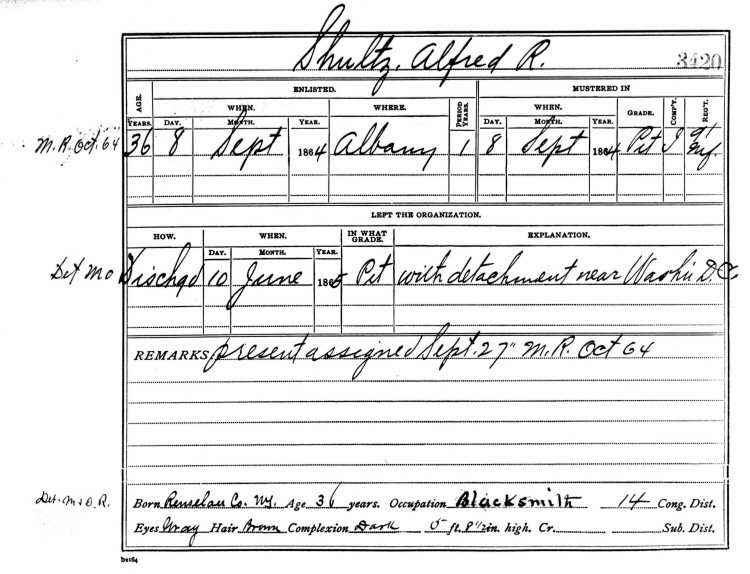 Shultz, Alfred R. 3420
AGE. ENLISTED. MUSTERED IN
WHEN. WHERE. PERIOD YEARS. WHEN. GRADE. COMP'Y. REG'T.
YEARS. DAY. MONTH. YEAR. DAY. MONTH. YEAR.
M.R. Oct. 64 36 8 Sept 1864 Albany 1 8 Sept 1864 Pvt I 91 Inf.
LEFT THE ORGANIZATION.
HOW. WHEN. IN WHAT GRADE. EXPLANATION.
DAY. MONTH. YEAR.
Det MO Dischgd 10 June 1865 Pvt with detachment near Washn D.C.
REMARKS: present assigned Sept. 27" M.R. Oct 64
Det. M & O.R. Born Renselaer Co. NY. Age 36 years. Occupation Blacksmith 14 Cong. Dist.
Eyes Gray Hair Brown Complexion Dark 5 ft. 8 1/2 in. high. Cr. Sub. Dist.
b2164